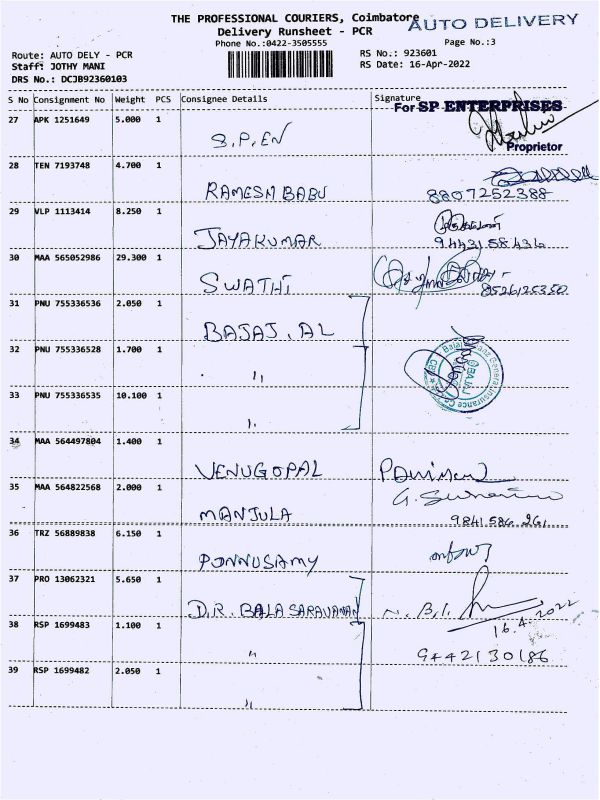 THE PROFESSIONAL COURIERS, Coimbatore
AUTO DELIVERY
Delivery Runsheet - PCR
Phone No.:0422-3505555
Page No.:3
Route: AUTO DELY - PCR
RS No.: 923601
Staff: JOTHY MANI
RS Date: 16-Apr-2022
DRS No.: DCJB92360103
S No Consignment No Weight PCS Consignee Details Signature
For SP ENTERPRISES
27 APK 1251649 5.000 1
S.P.EN
Proprietor
28 TEN 7193748 4.700 1
RAMESH BABU 8807252388
29 VLP 1113414 8.250 1
JAYAKUMAR 9443158436
30 MAA 565052986 29.300 1
SWATHI 8526125350
31 PNU 755336536 2.050 1
BAJAJ. AL
32 PNU 755336528 1.700 1
"
33 PNU 755336535 10.100 1
"
34 MAA 564497804 1.400 1
VENUGOPAL
35 MAA 564822568 2.000 1
MANJULA 9841 586 261
36 TRZ 56889838 6.150 1
PONNUSAMY
37 PRO 13062321 5.650 1
D.R. BALA SARAVANAN N. B. I.
16.4.2022
38 RSP 1699483 1.100 1
" 9442130186
39 RSP 1699482 2.050 1
"